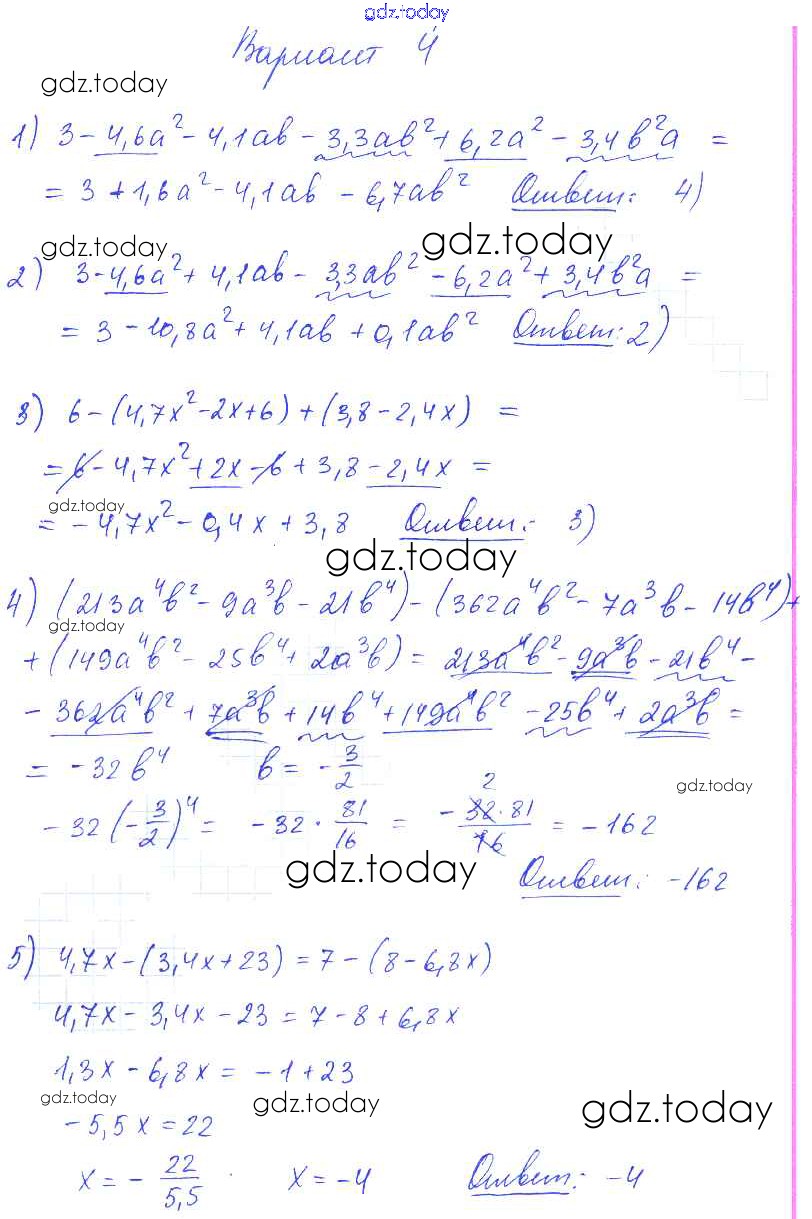 gdz.today
Вариант 4
gdz.today
1) 3 - 4,6a² - 4,1ab - 3,3ab² + 6,2a² - 3,4b²a =
= 3 + 1,6a² - 4,1ab - 6,7ab² Ответ: 4)
gdz.today gdz.today
2) 3 - 4,6a² + 4,1ab - 3,3ab² - 6,2a² + 3,4b²a =
= 3 - 10,8a² + 4,1ab + 0,1ab² Ответ: 2)
3) 6 - (4,7x² - 2x + 6) + (3,8 - 2,4x) =
= 6 - 4,7x² + 2x - 6 + 3,8 - 2,4x =
gdz.today
= - 4,7x² - 0,4x + 3,8 Ответ: 3)
gdz.today
4) (213a⁴b² - 9a³b - 21b⁴) - (362a⁴b² - 7a³b - 14b⁴) +
gdz.today
+ (149a⁴b² - 25b⁴ + 2a³b) = 213a⁴b² - 9a³b - 21b⁴ -
- 362a⁴b² + 7a³b + 14b⁴ + 149a⁴b² - 25b⁴ + 2a³b =
= - 32b⁴ b = - 3/2
gdz.today
- 32 (- 3/2)⁴ = - 32 · 81/16 = - 32 · 81 / 16 = - 162
2
gdz.today
Ответ: -162
5) 4,7x - (3,4x + 23) = 7 - (8 - 6,8x)
4,7x - 3,4x - 23 = 7 - 8 + 6,8x
1,3x - 6,8x = - 1 + 23
gdz.today gdz.today gdz.today
- 5,5x = 22
x = - 22/5,5 . x = -4 Ответ: -4